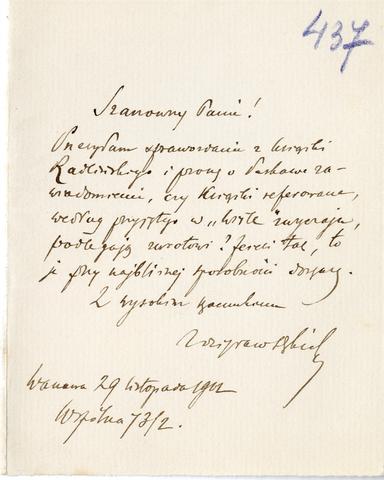 437
Szanowny Panie!
Przesyłam sprawozdanie z książki
Radlińskiego i proszę o łaskawe za-
wiadomienie, czy książki referowane,
według przyjętego w „Wiśle" zwyczaju,
podlegają zwrotowi? Jeżeli tak, to
je przy najbliższej sposobności doręczę.
Z wysokim szacunkiem
Warszawa 29 listopada 1902
Wspólna 73/2.